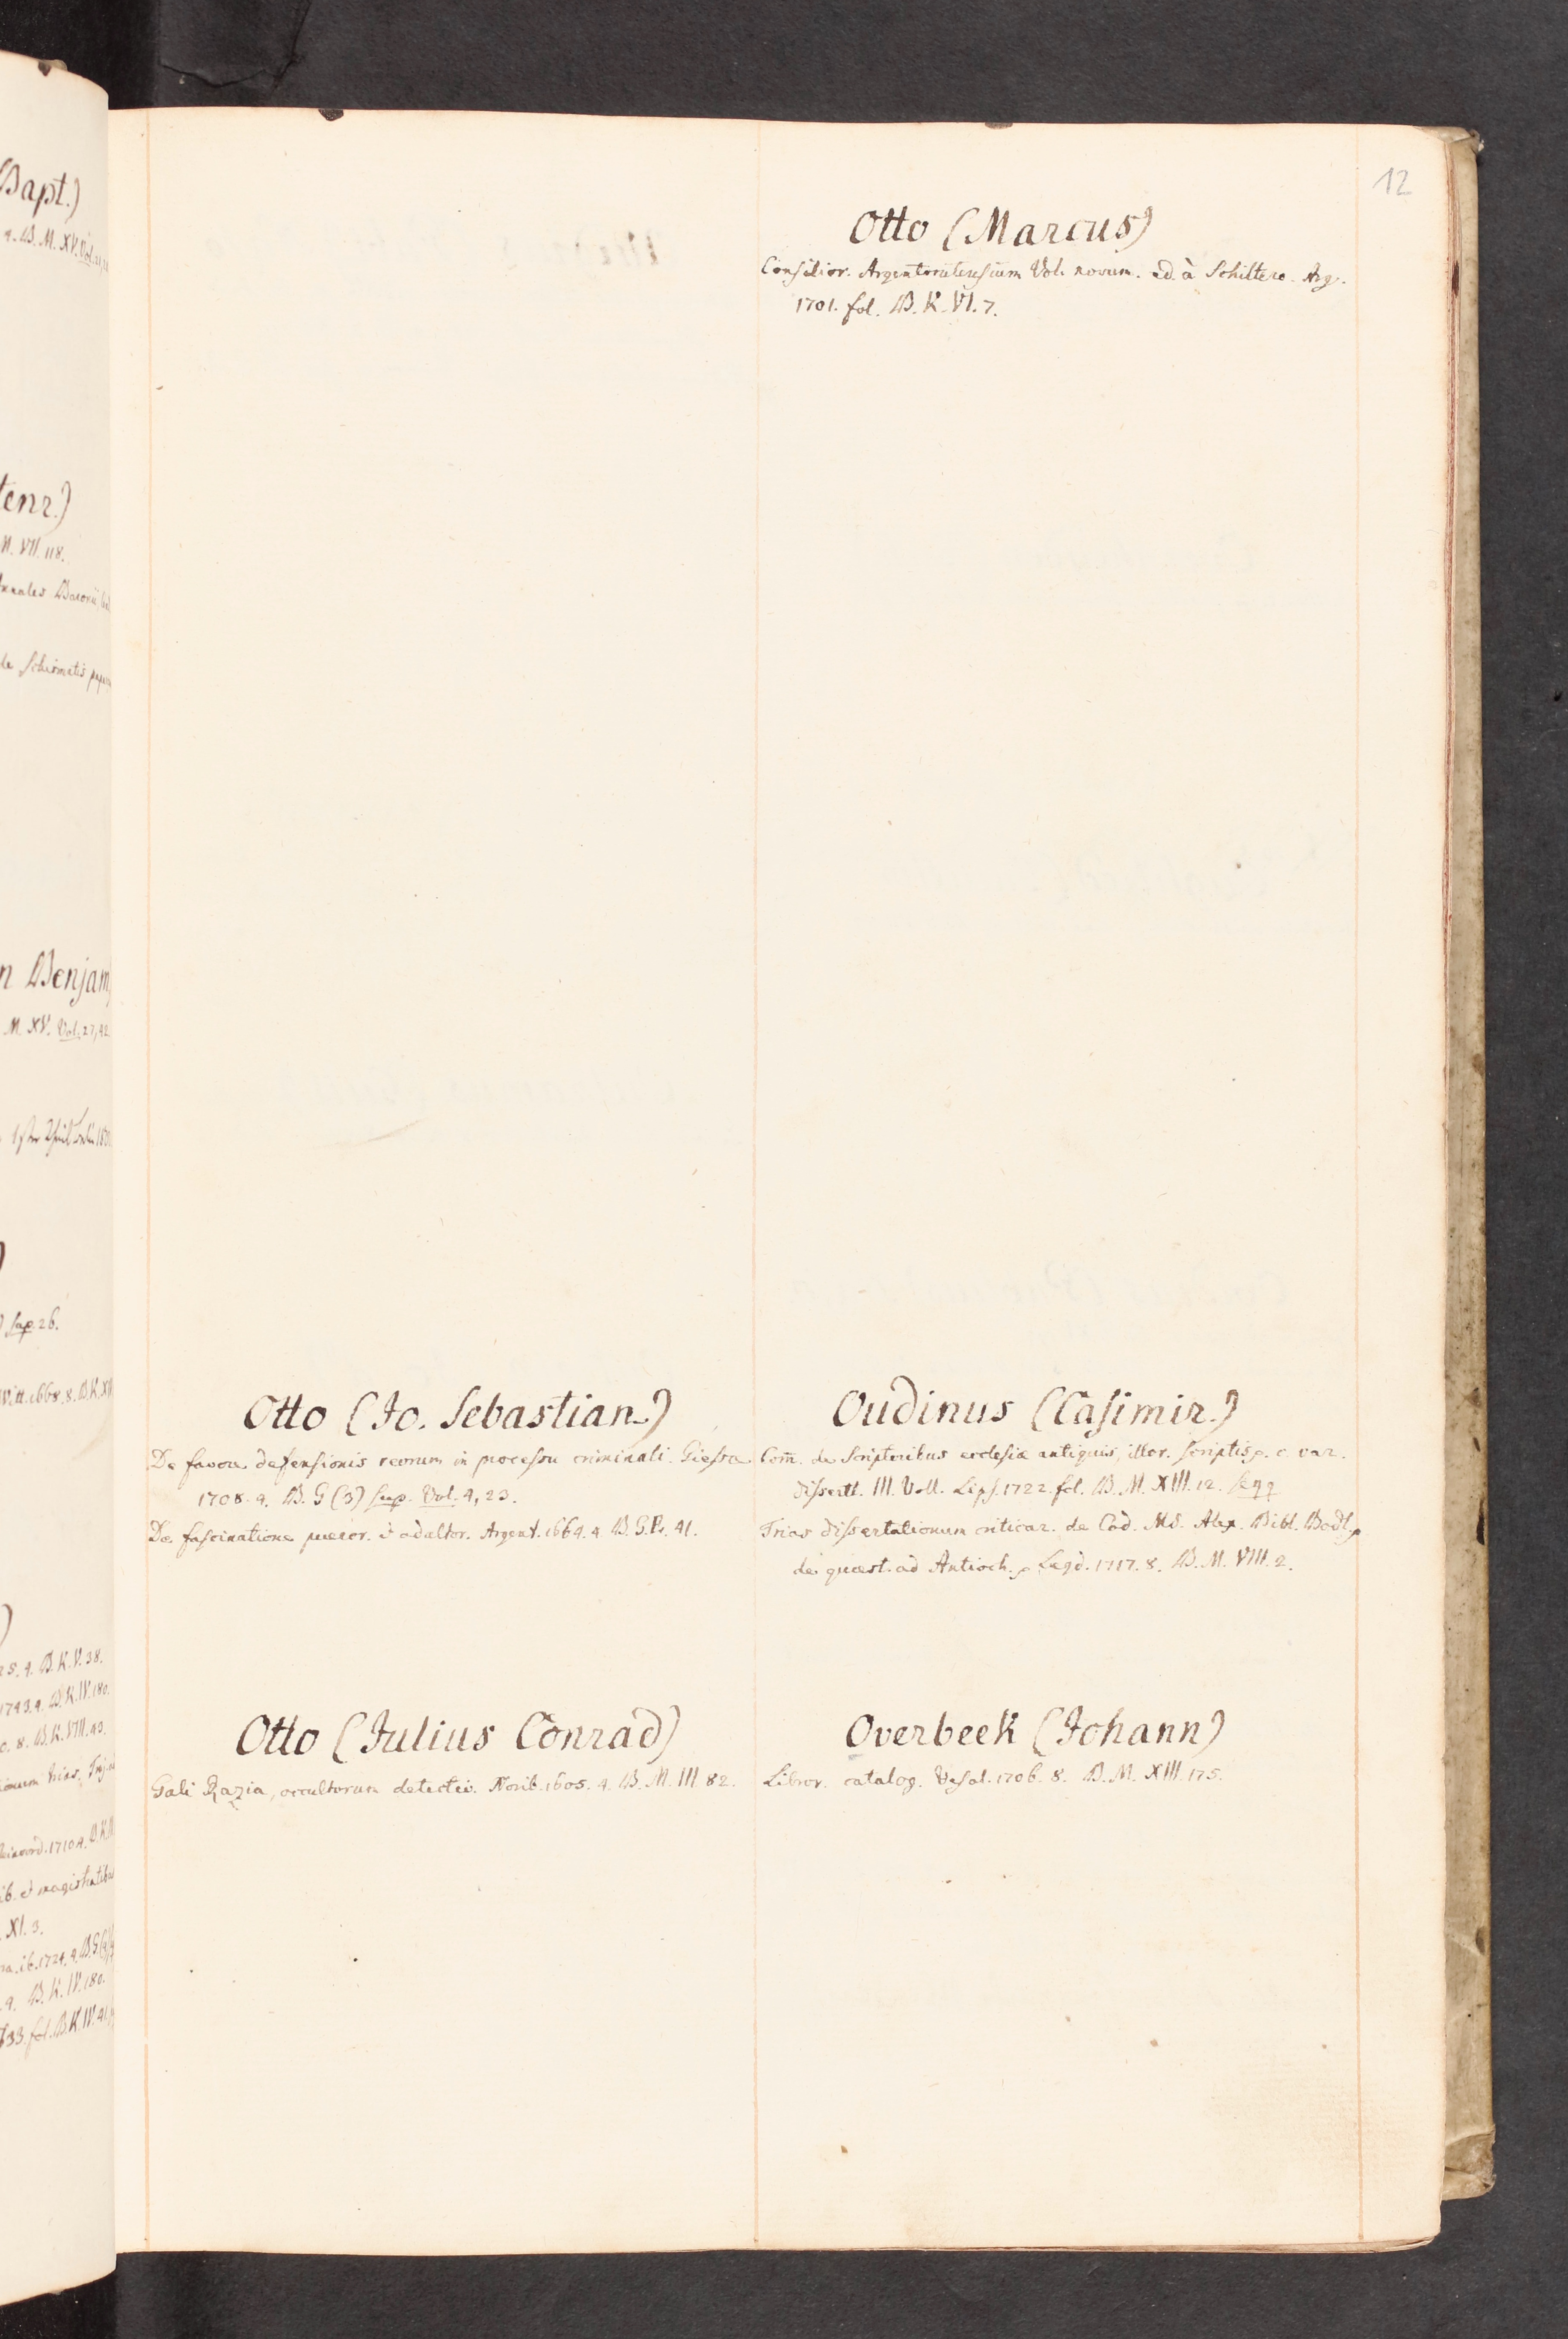 12
Otto (Jo. Sebastian.)
De favore defensionis reorum in processu criminali. Giessae
1708. 4. B. G (3) sup. Vol. 4, 23.
De fascinatione pueror. et adultor. Argent. 1664. 4. B. G. 41.
Otto (Julius Conrad)
Gali Razia, occultorum detectio. Norib. 1605. 4. B. M. III. 82.
Otto (Marcus)
Consilior. Argentoratensium Vol. novum. ed. à Schiltero. Arg.
1701. fol. B. K. VI. 7.
Oudinus (Casimir.)
Com̄. de Scriptoribus ecclesiæ antiquis, illor. scriptis c. var.
dissertt. III. Voll. Lips. 1722. fol. B. M. XIII. 12. seqq
Trias dissertationum criticar. de Cod. MS. Alex. Bibl. Bodl.
de quæst. ad Antioch. Lugd. 1717. 8. B. M. VIII. 2.
Overbeek (Johann)
Libror. catalog. Vesal. 1706. 8. B. M. XIII. 175.
Bapt.)
4. B. M. XV. Vol.
tenr.)
M. VII. 118.
de Schismatis
n Benjam
M. XV. Vol. 27, 42.
sup. 26.
Witt. 1668. 8. B. K.
25. 4. B. K. V. 38.
1743. 4. B. K. IV. 180.
8. B. K. VIII. 43.
ib. et magistratibus
XI. 3.
4. B. K. IV. 180.
733. fol. B. K. IV. 41